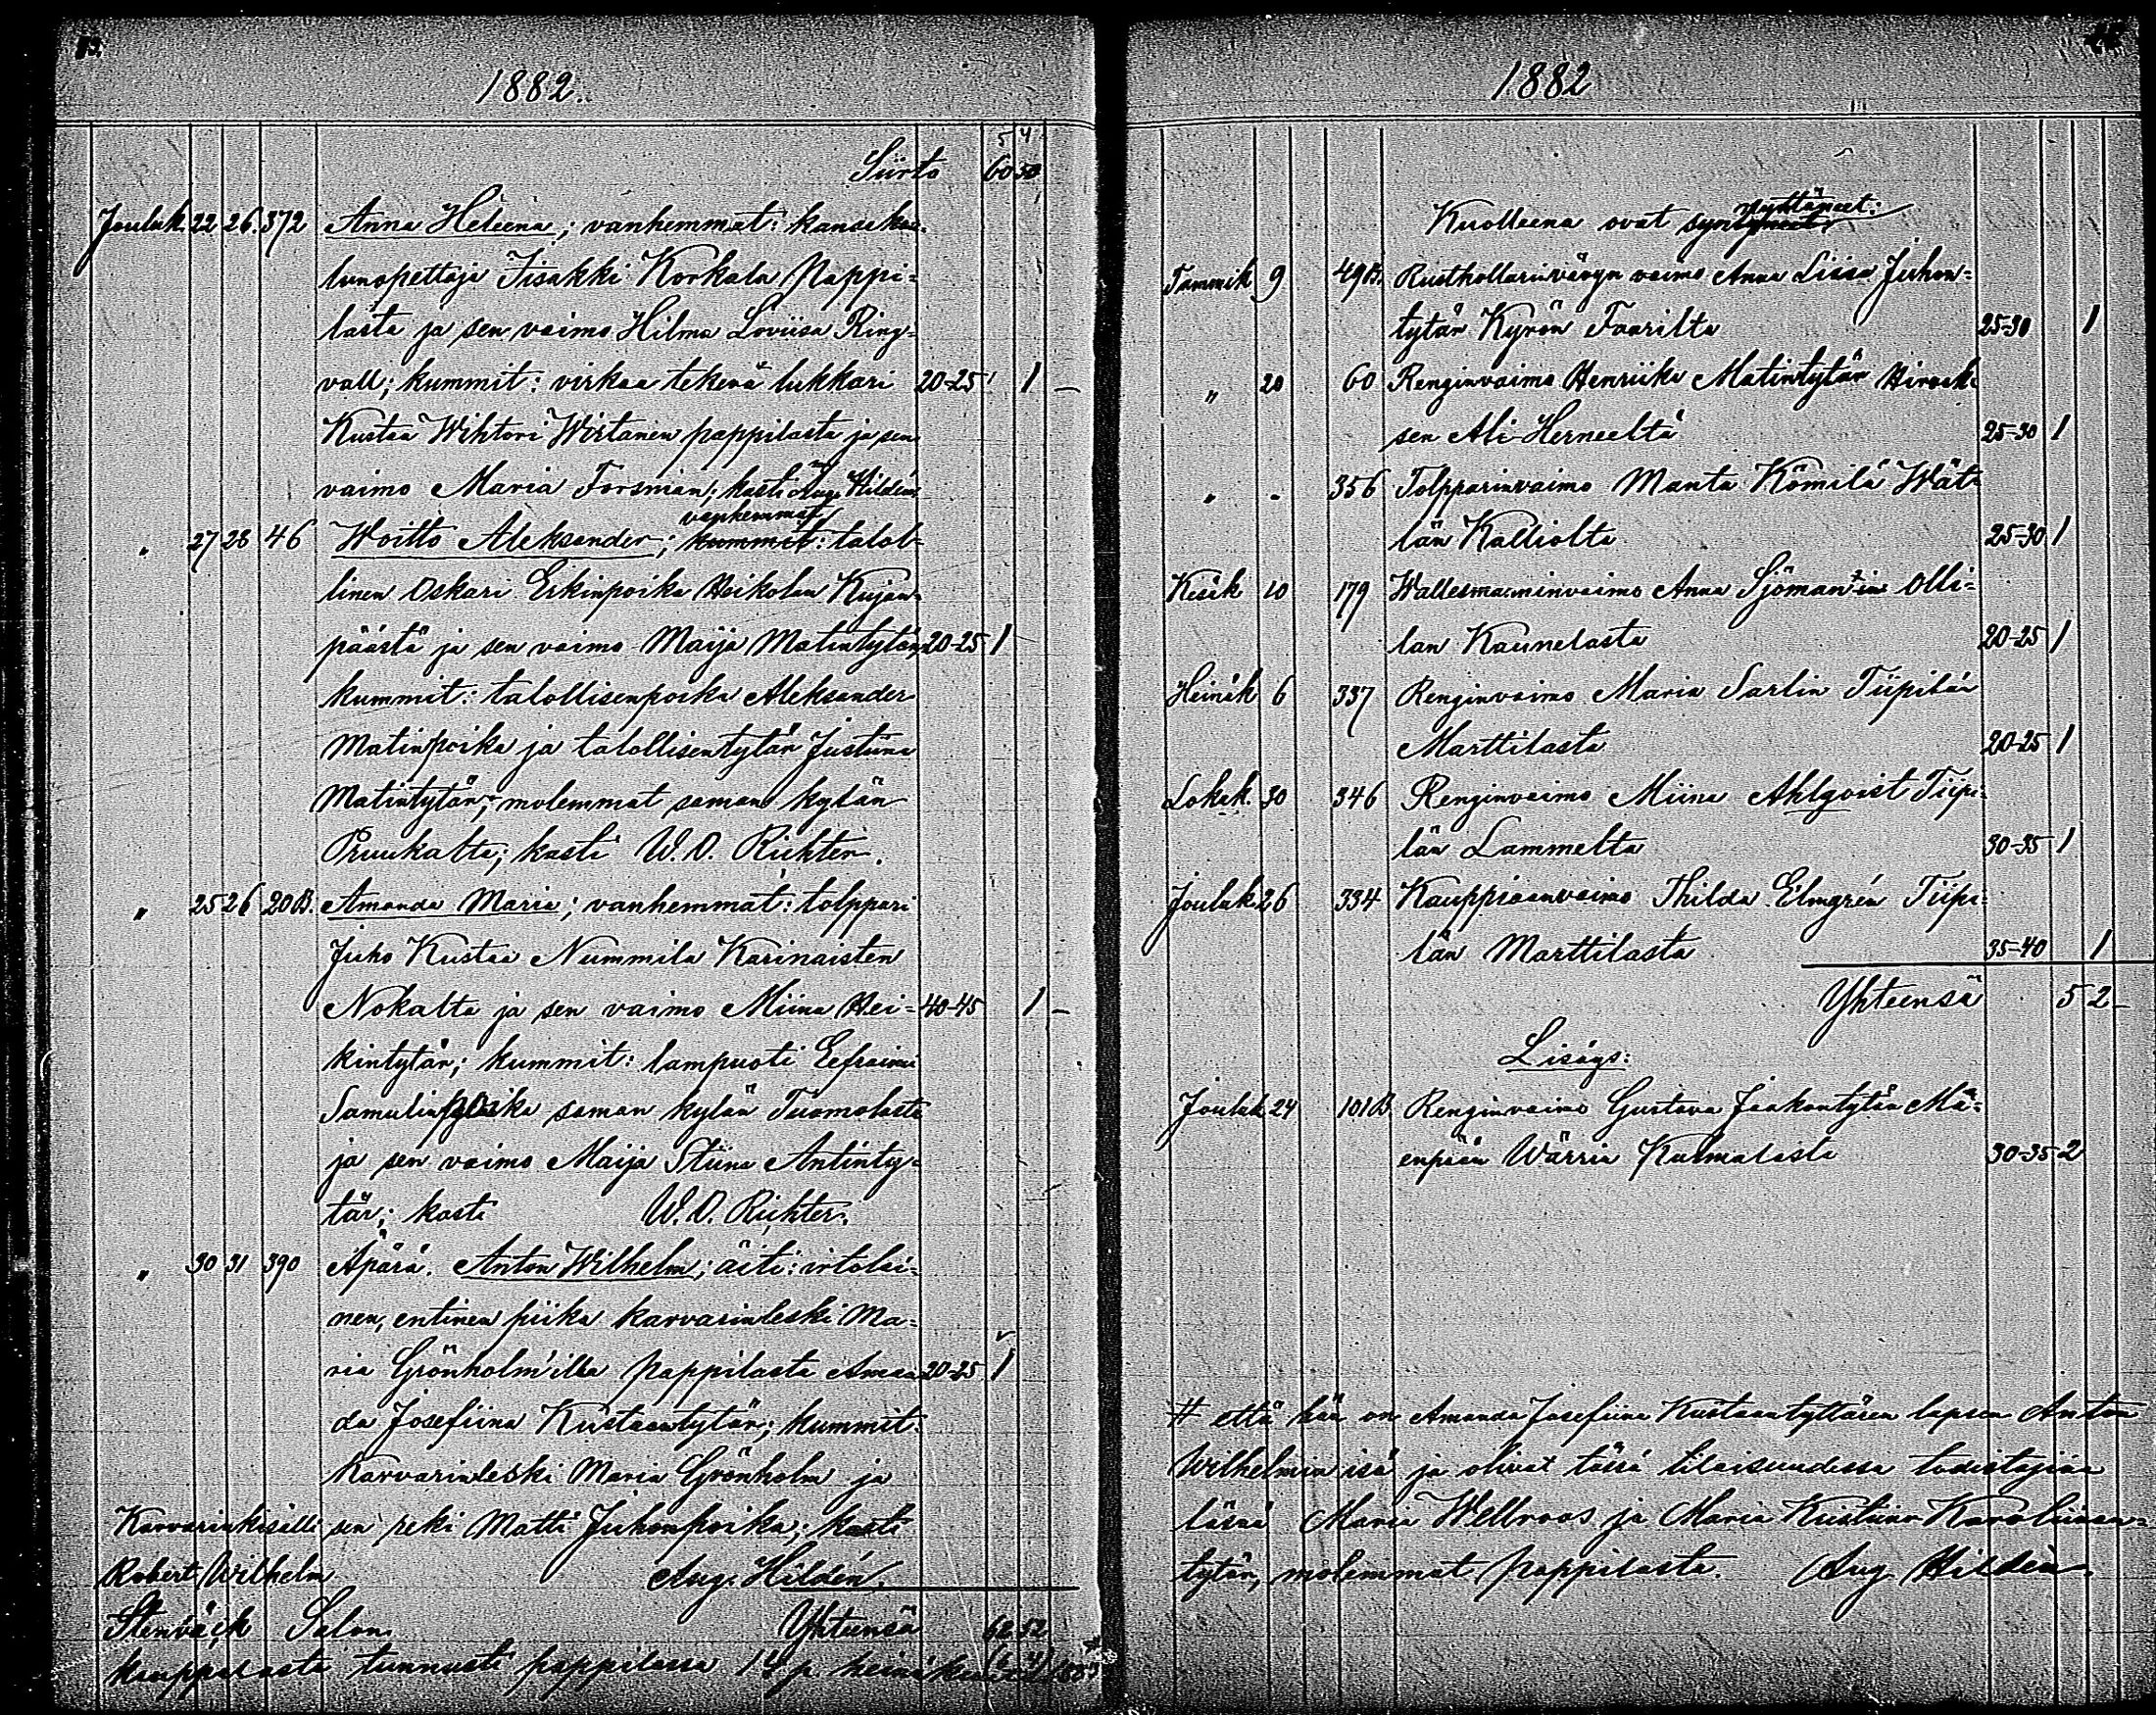 1882.
5 4
Siirto 60 50
Jouluk. 22 26. 372 Anna Heleena; vanhemmat: kansakou-
lunopettaja Iisakki Korkala Pappi=
lasta ja sen vaimo Hilma Loviisa Ring=
vall; kummit: virkaa tekevä lukkari 20-25 1 –
Kustaa Wihtori Wirtanen pappilasta ja sen
vaimo Maria Forsman; kasti Aug. Hildén.
vanhemmat
„ 27 28 46 Woitto Aleksander; kummit: talol=
linen Oskari Erkinpoika Heikolan Kujan=
päästä ja sen vaimo Maija Matintytär; 20-25 1
kummit: talollisenpoika Aleksander
Matinpoika ja talollisentytär Justiina
Matintytär, molemmat saman kylän
Pruukalta; kasti W. O. Richter.
„ 25 26 20B. Amanda Maria; vanhemmat: tolppari
Juho Kustaa Nummila Karinaisten
Nokalta ja sen vaimo Miina Hei= 40-45 1 –
kintytär; kummit: lampuoti Eefraimi
Samulinpoika saman kylän Tuomolasta
ja sen vaimo Maija Stiina Antinty=
tär; kasti W. O. Richter.
„ 30 31 390 Äpärä. Anton Wilhelm; äiti: irtolai=
nen, entinen piika karvarinleski Ma=
ria Grönholm'illa Pappilasta Aman= 20-25 1
da Josefiina Kustaantytär; kummit:
Karvarinleski Maria Grönholm ja
sen reki Matti Juhonpoika; kasti
Aug. Hildén.
Yhteensä 62 52
Karvarinkisälli
Robert Wilhelm
Stenbäck Salon
kauppalasta tunnusti pappilassa 14 p. heinäkuu
1882
Kuolleena ovat synnyttäneet:
Tammik 9 49B. Rusthollarinvävyn vaimo Anna Liisa Juhon=
tytär Kyrön Faarilta 25-30 1
„ 20 60 Renginvaimo Henriika Matintytär Hirvik-
sen Ali-Herneeltä 25-30 1
„ - 356 Tolpparinvaimo Manta Kömilä Wät=
län Kalliolta 25-30 1
Kesäk 10 179 Wallesmanninvaimo Anna Sjöman Olli=
lan Kaunelasta 20-25 1
Heinäk 6 337 Renginvaimo Maria Sarlin Tiipilän
Marttilasta 20-25 1
Lokak. 30 346 Renginvaimo Miina Ahlqvist Tiipi=
län Lammelta 30-35 1
Jouluk 26 334 Kauppiaanvaimo Thilda Elmgrén Tiipi=
län Marttilasta 35-40 1
Yhteensä 5 2 –
Lisäys:
Jouluk 24 101B. Renginvaimo Gustava Jaakontytär Mä=
enpään Wärrin Kulmalasta 30-35 2
# että hän on Amanda Josefiina Kustaantyttären lapsen Anton
Wilhelmin isä ja olivat tässä tilaisuudessa todistajina
läsnä Maria Wellroos ja Maria Kristiina Karoliinan=
tytär, molemmat Pappilasta. Aug Hildén.